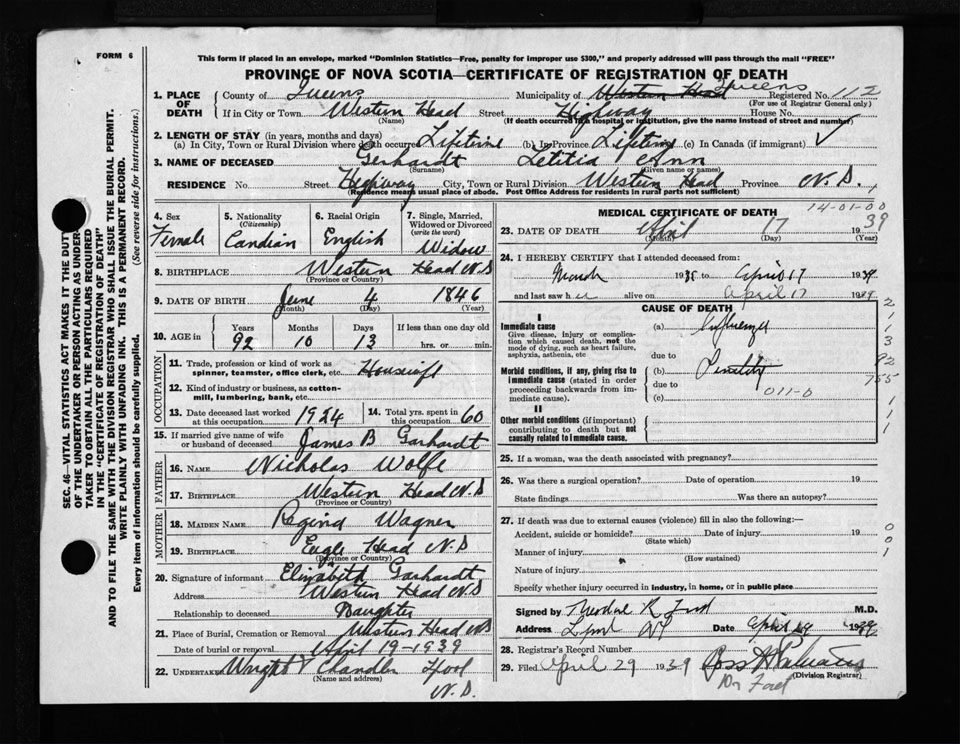 FORM 6
This form if placed in an envelope, marked "Dominion Statistics—Free, penalty for improper use $300," and properly addressed will pass through the mail "FREE"
PROVINCE OF NOVA SCOTIA—CERTIFICATE OF REGISTRATION OF DEATH
1. PLACE OF DEATH
County of Queens Municipality of Western Head Queens Registered No. 112
(For use of Registrar General only)
If in City or Town Western Head Street Highway House No.
(Name) (If death occurred in a hospital or institution, give the name instead of street and number)
2. LENGTH OF STAY (in years, months and days)
(a) In City, Town or Rural Division where death occurred Lifetime (b) In Province Lifetime (c) In Canada (if immigrant) ✓
3. NAME OF DECEASED Gerhardt Letitia Ann
(Surname) (Given name or names)
RESIDENCE No. Street Highway City, Town or Rural Division Western Head Province N.S.
(Residence means usual place of abode. Post Office Address for residents in rural parts not sufficient)
4. Sex Female
5. Nationality (Citizenship) Candian
6. Racial Origin English
7. Single, Married, Widowed or Divorced (write the word) Widow
8. BIRTHPLACE Western Head N.S
(Province or Country)
9. DATE OF BIRTH June 4 1846
(Month) (Day) (Year)
10. AGE in Years 92 Months 10 Days 13 If less than one day old hrs. or min.
OCCUPATION
11. Trade, profession or kind of work as spinner, teamster, office clerk, etc. Housewife
12. Kind of industry or business, as cotton-mill, lumbering, bank, etc.
13. Date deceased last worked at this occupation 1924 14. Total yrs. spent in this occupation 60
15. If married give name of wife or husband of deceased James B Garhardt
FATHER
16. NAME Nicholas Wolfe
17. BIRTHPLACE Western Head N.S
(Province or Country)
MOTHER
18. MAIDEN NAME Regina Wagner
19. BIRTHPLACE Eagle Head N.S
(Province or Country)
20. Signature of informant Elizabeth Garhardt
Address Western Head N.S
Relationship to deceased Daughter
21. Place of Burial, Cremation or Removal Western Head N.S
Date of burial or removal April 19-1939
22. UNDERTAKER Wright & Chandler Lpool
(Name and address) N.S.
MEDICAL CERTIFICATE OF DEATH 14-01-00
23. DATE OF DEATH April 17 1939
(Month) (Day) (Year)
24. I HEREBY CERTIFY that I attended deceased from:
March 1935 to April 17 1939
and last saw her alive on April 17 1939
CAUSE OF DEATH
I
Immediate cause
Give disease, injury or complication which caused death, not the mode of dying, such as heart failure, asphyxia, asthenia, etc
(a) Influenza
due to
Morbid conditions, if any, giving rise to immediate cause (stated in order proceeding backwards from immediate cause).
(b) Senility
due to
(c) 011-0
II
Other morbid conditions (if important) contributing to death but not causally related to immediate cause.
2
1
1
3
92
755
1
1
1
25. If a woman, was the death associated with pregnancy?
26. Was there a surgical operation? Date of operation 19
State findings Was there an autopsy?
27. If death was due to external causes (violence) fill in also the following:—
Accident, suicide or homicide? Date of injury 19
(State which)
Manner of injury
(How sustained)
Nature of injury
Specify whether injury occurred in industry, in home, or in public place
0
0
1
Signed by R Ford M.D.
Address Lpool NS Date April 29 1939
28. Registrar's Record Number
29. Filed April 29 1939 Ross
(Division Registrar)
Dr Ford
SEC. 46—VITAL STATISTICS ACT MAKES IT THE DUTY
OF THE UNDERTAKER OR PERSON ACTING AS UNDER-
TAKER TO OBTAIN ALL THE PARTICULARS REQUIRED
IN THE "CERTIFICATE OF REGISTRATION OF DEATH"
AND TO FILE THE SAME WITH THE DIVISION REGISTRAR WHO SHALL ISSUE THE BURIAL PERMIT.
WRITE PLAINLY WITH UNFADING INK. THIS IS A PERMANENT RECORD.
Every item of information should be carefully supplied. (See reverse side for instructions.)